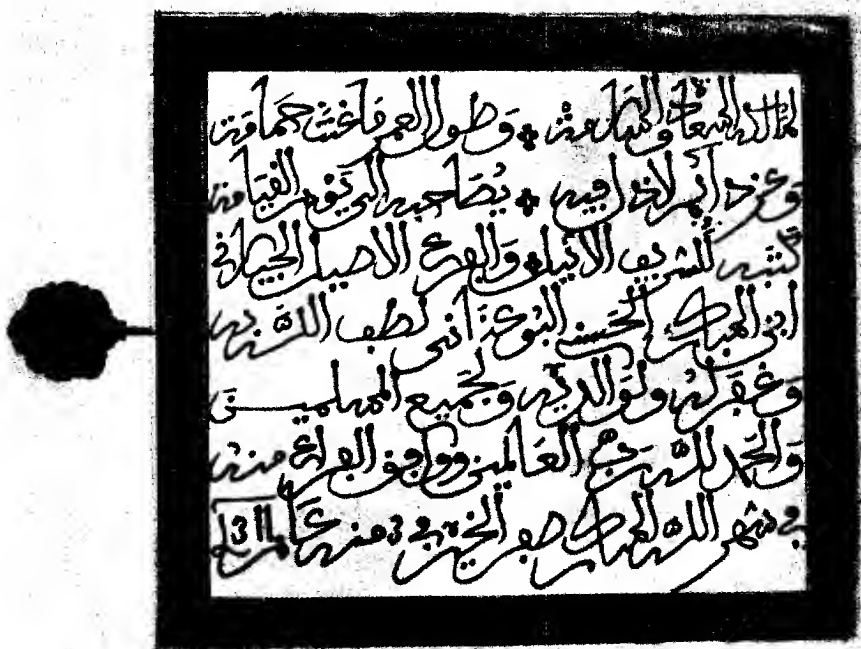 له السعادة والسلامة ۞ وطول العمر ما غنت حمامة
وعز دائم لا ذل فيه ۞ يصاحبه إلى يوم القيامة
كتبه الشريف الأثيل والفرع الأصيل الجيلاني
ابن المبارك الحسني البوعناني لطف الله به
وغفر له ولوالديه ولجميع المسلمين
والحمد لله رب العالمين ووافق الفراغ منه
في شهر الله المبارك صفر الخير في 3 منه عام